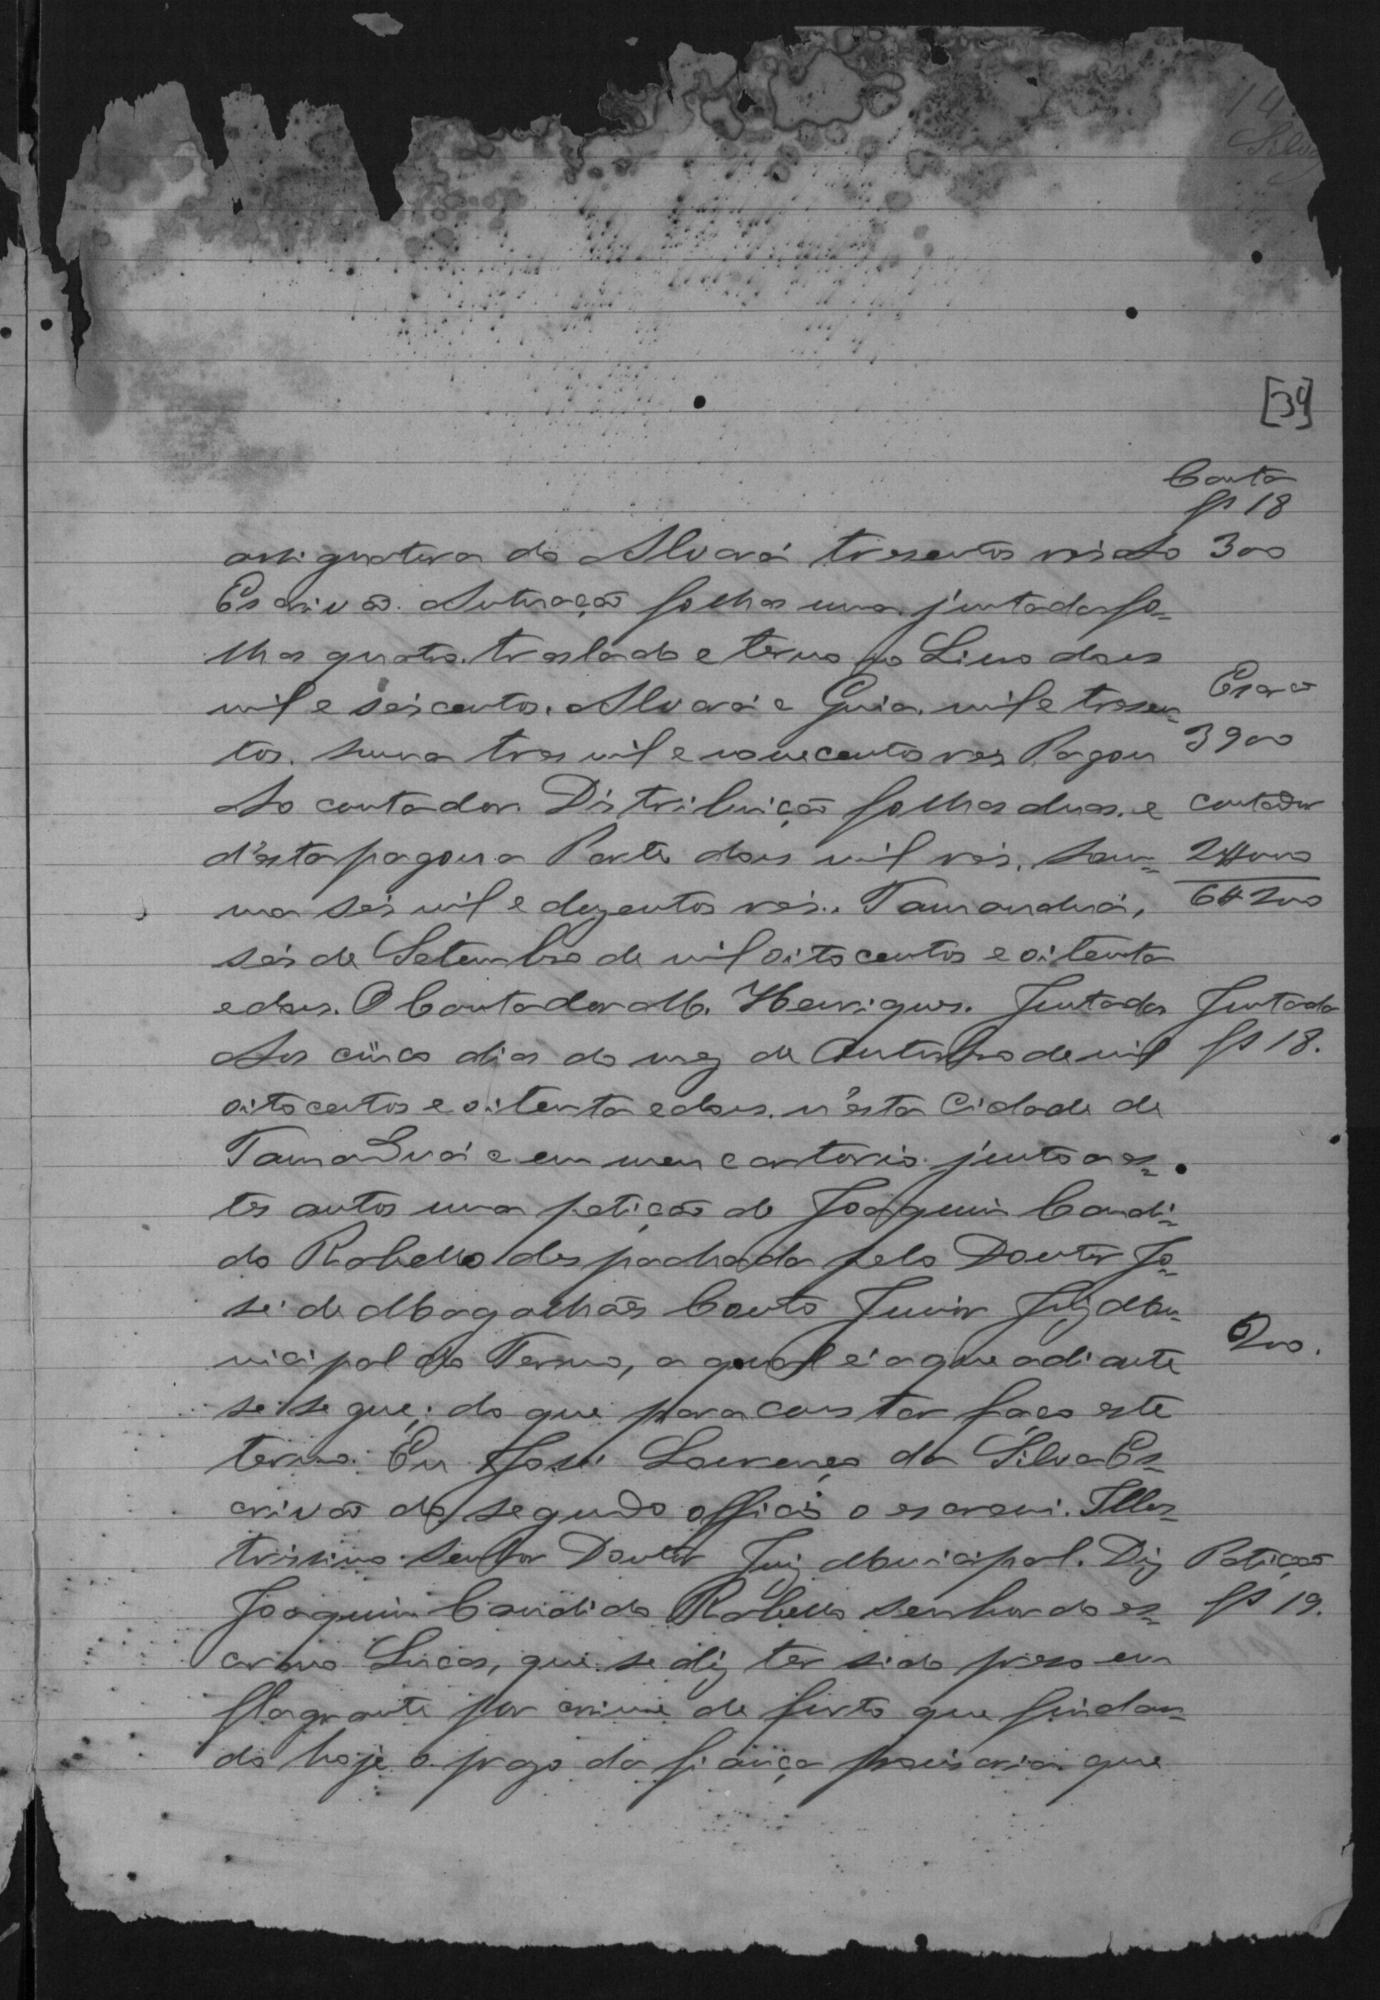 14
Silva
[34]
Conta
fs 18
assignatura do Alvará tresentos reis Ao 300
Escrivão. Autuação folhas uma. juntada fo-
lhas quatro. traslado e termo no Livro dous
mil e seiscentos. Alvará e Guia. mil e tresen- Escrão
tos. Summa tres mil e novecentos res Pagou 3900
Ao contador. Distribuição folhas duas. e contador
d'esta pagou a Parte dous mil reis. Som- 2#000
ma seis mil e duzentos reis. Tamanduá, 6#200
seis de Setembro de mil oitocentos e oitenta
e dous. O Contador M. Henriques. Juntada Juntada
Aos cinco dias do mez de Outubro de mil fs 18.
oitocentos e oitenta e dous. n'esta Cidade de
Tamanduá e em meu cartorio. junto a es-
tes autos uma petição de Joaquim Candi-
do Rabello despachada pelo Doutor Jo-
sé de Magalhães Couto Junior Juiz Mu-
nicipal do Termo, a qual é a que adiante 200.
se segue; do que para constar faço este
termo. Eu José Lourenço da Silva Es-
crivão do segundo officio o escrevi. Illus-
trissimo Senhor Doutor Juiz Municipal. Diz Petição
Joaquim Candido Rabello senhor do es- fs 19.
cravo Lucas, que se diz ter sido preso em
flagrante por crime de furto que findan-
do hoje o prazo da fiança provisoria que